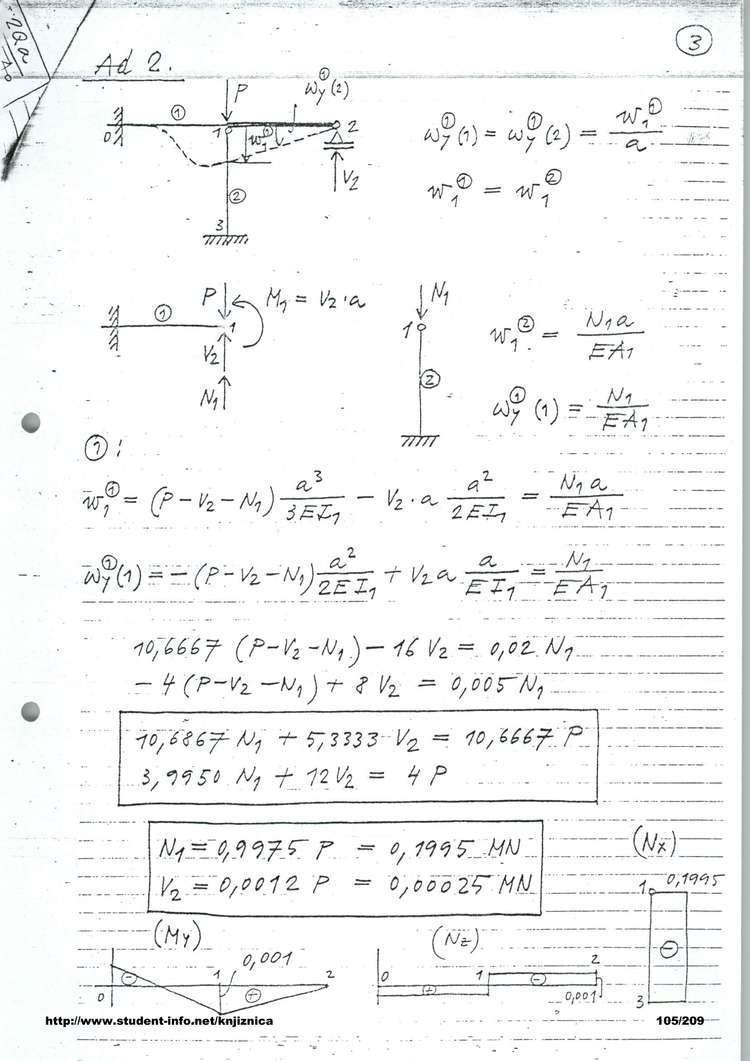 2Qa
3
Ad 2.
P ω_y^①(2)
① 1 w_1^① 2
0
V_2
②
3
ω_y^①(1) = ω_y^①(2) = w_1^①/a
w_1^① = w_1^②
P M_1 = V_2·a
① 1
V_2
N_1
N_1
1
②
w_1^② = N_1 a/EA_1
ω_y^①(1) = N_1/EA_1
①:
w_1^① = (P-V_2-N_1) a^3/3EI_1 - V_2·a a^2/2EI_1 = N_1 a/EA_1
ω_y^①(1) = -(P-V_2-N_1) a^2/2EI_1 + V_2 a a/EI_1 = N_1/EA_1
10,6667 (P-V_2-N_1) - 16 V_2 = 0,02 N_1
- 4 (P-V_2-N_1) + 8 V_2 = 0,005 N_1
10,6867 N_1 + 5,3333 V_2 = 10,6667 P
3,9950 N_1 + 12 V_2 = 4 P
N_1 = 0,9975 P = 0,1995 MN
V_2 = 0,0012 P = 0,00025 MN
(N_x)
1 0,1995
⊖
3
(M_y)
0,001
⊖ 1 2
0 ⊕
(N_z)
0 1 2
⊕ ⊖
0,001
http://www.student-info.net/knjiznica 105/209